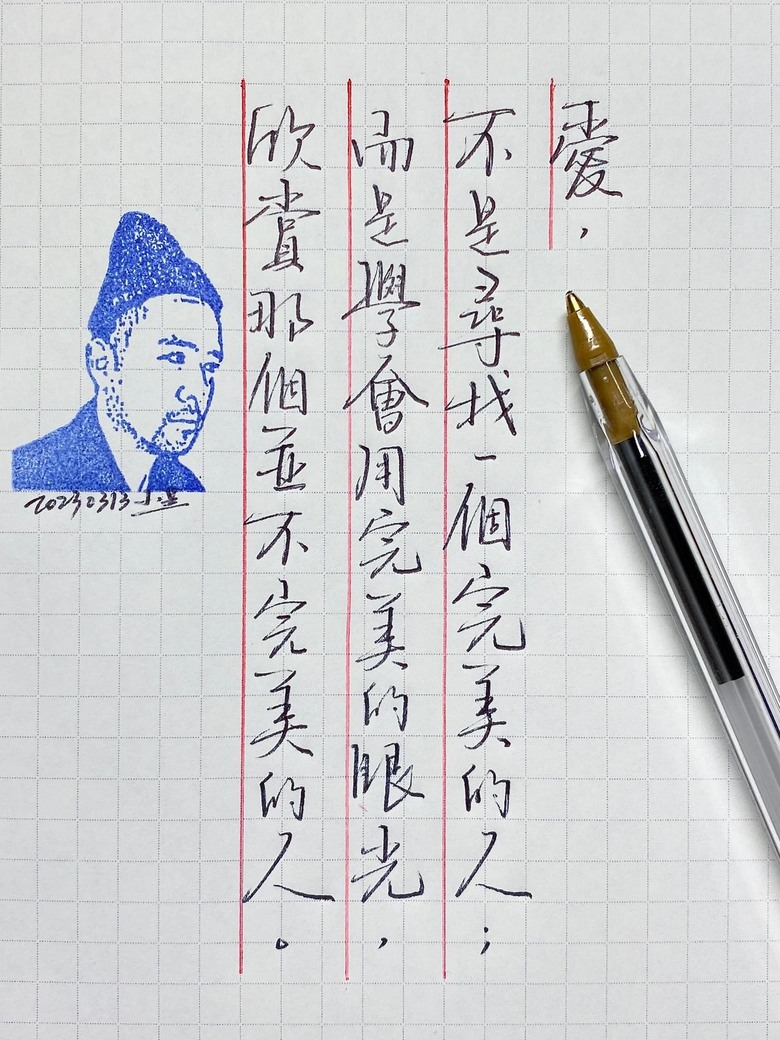 愛，
不是尋找一個完美的人；
而是學會用完美的眼光，
欣賞那個並不完美的人。
20230313